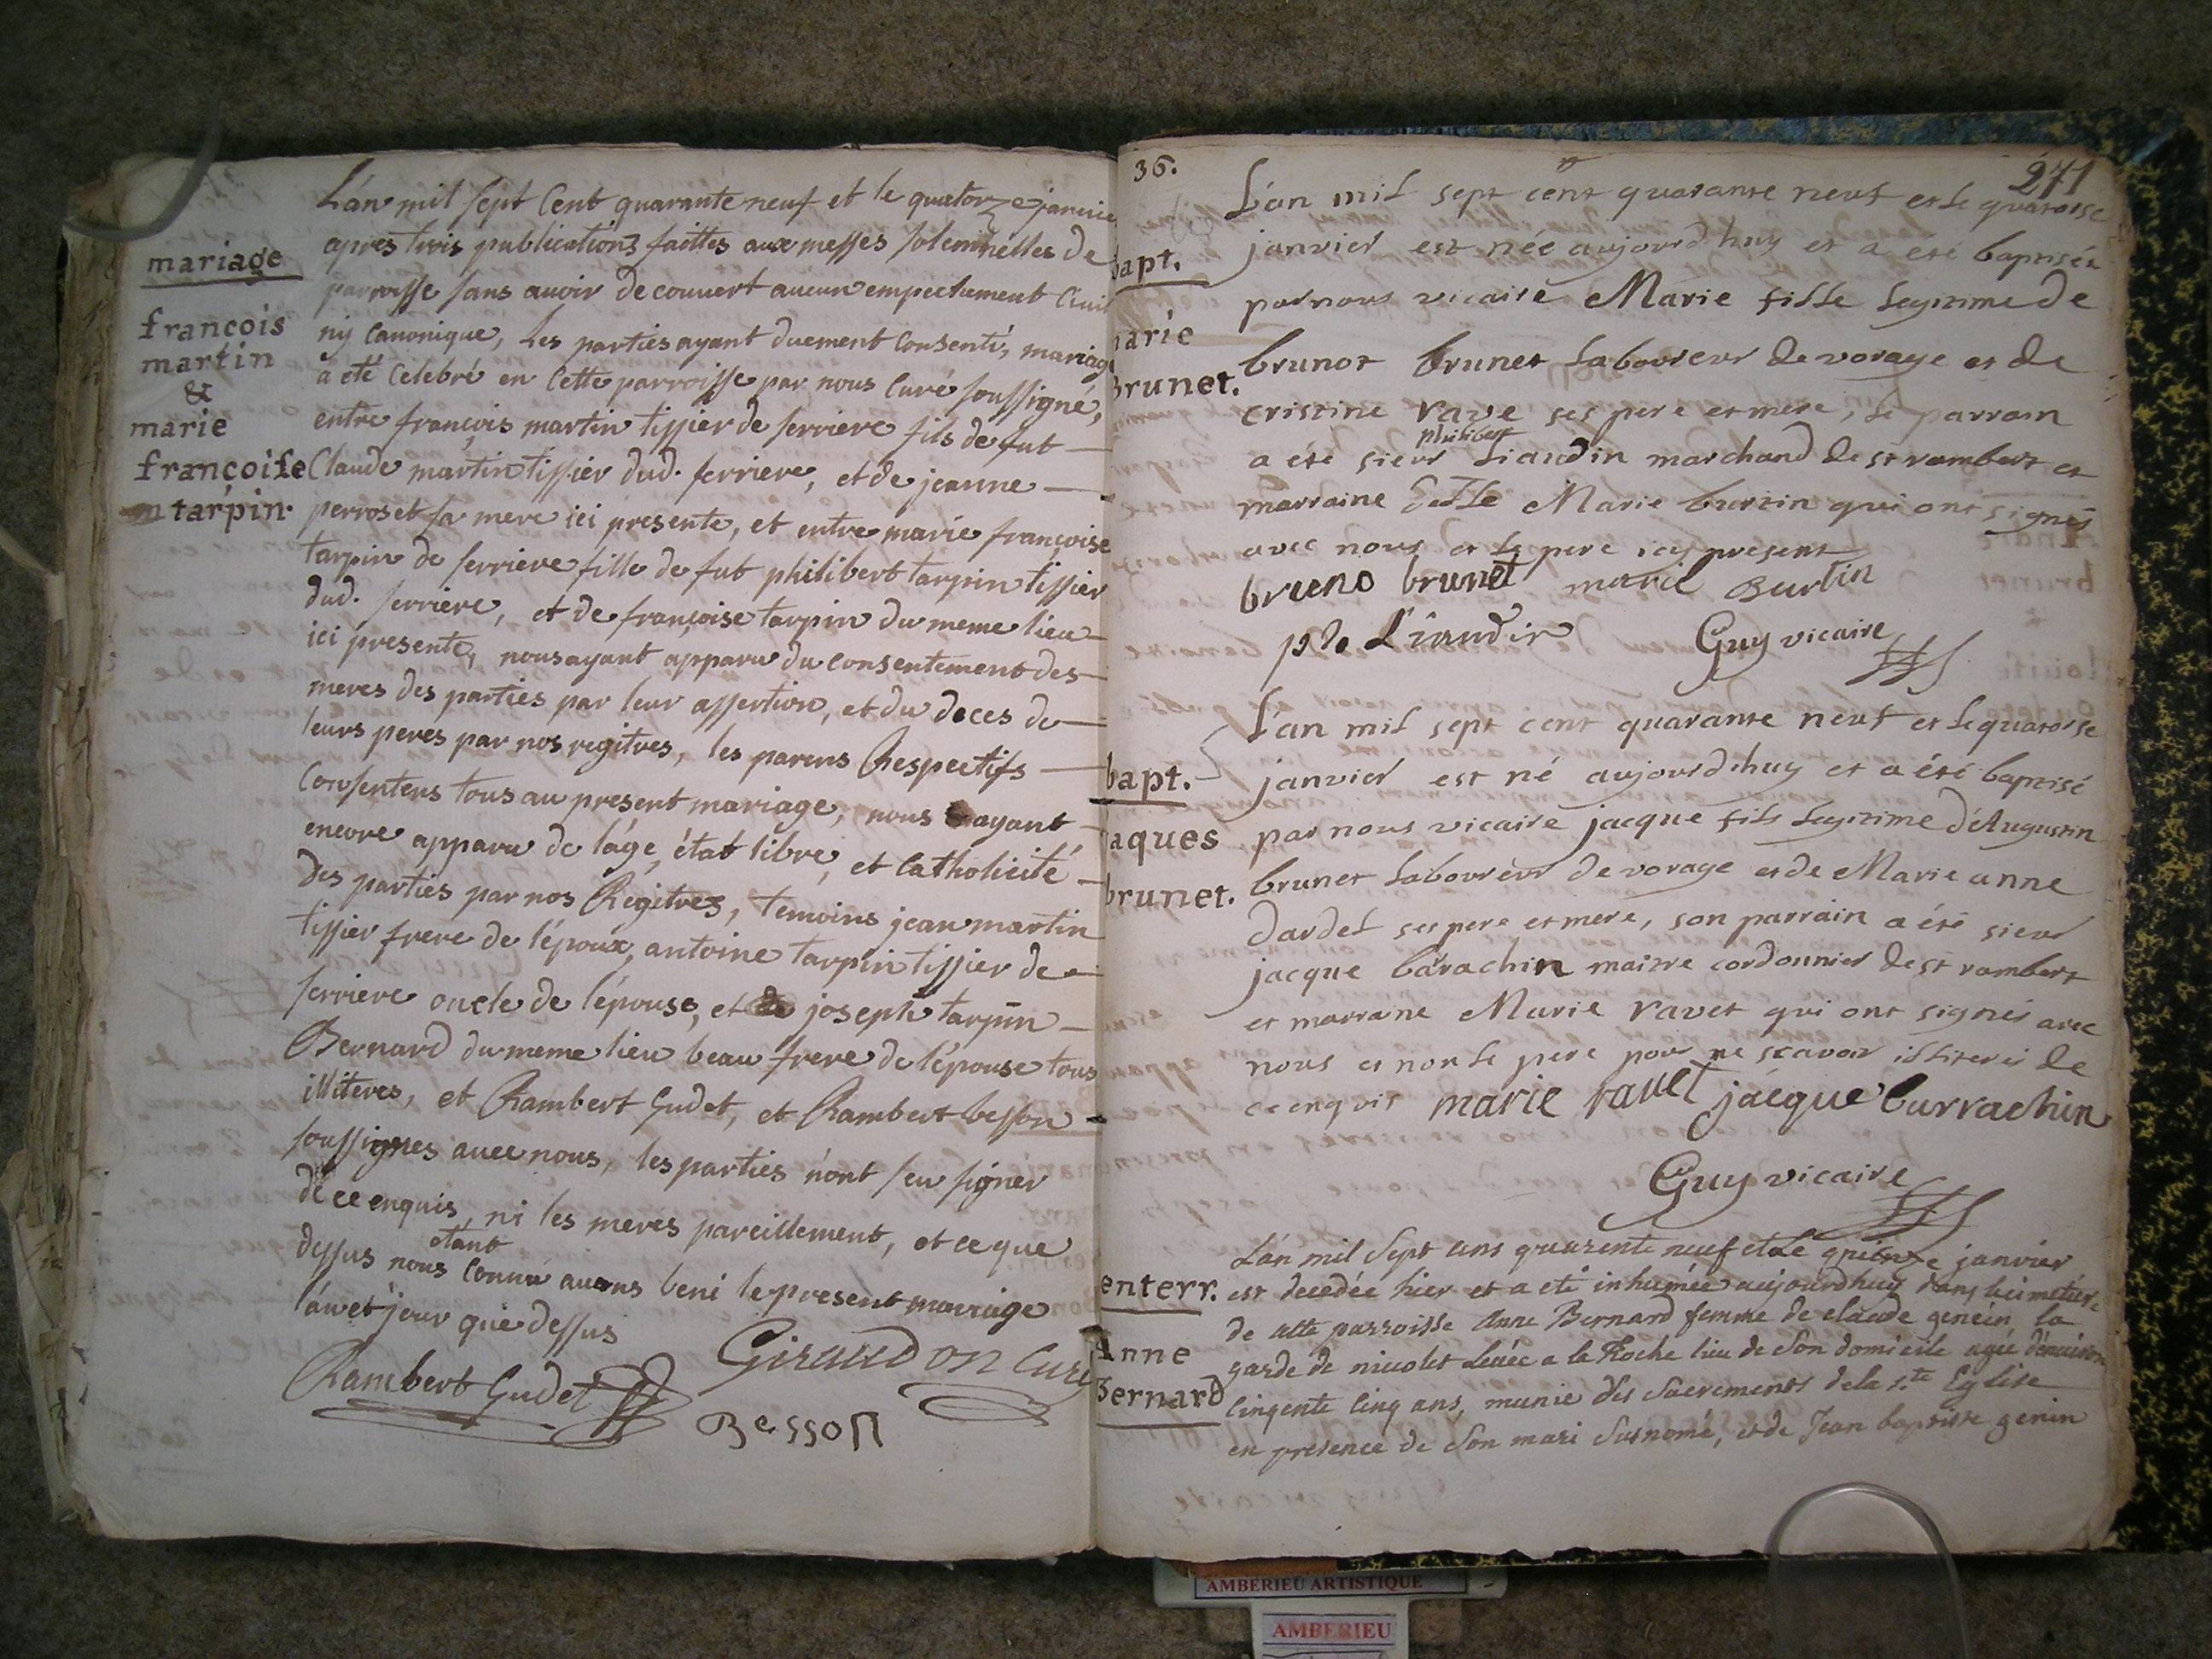 mariage
françois
martin
&
marie
françoise
tarpin.
L'an mil sept Cent quarante neuf et le quatorze janvie
apres trois publications faittes aux messes solemnelles de
parroisse sans avoir decouvert aucun empechement Civil
ny Canonique, Les parties ayant duement Consenti, mariage
a eté Celebré en Cette parroisse par nous Curé soussigné,
entre françois martin tissier de serriere fils de fut
Claude martin tissier dud. serriere, et de jeanne
perroset sa mere ici presente, et entre marie françoise
tarpin de serriere fille de fut philibert tarpin tissier
dud. serriere, et de françoise tarpin du meme lieu
ici presente, nous ayant apparu du consentement des
meres des parties par leur assertion, et du deces de
leurs peres par nos regitres, les parens Respectifs
Consentens tous au present mariage, nous ayant
encore apparu de l'áge, état libre, et Catholicité
des parties par nos Regitres, temoins jean martin
tissier frere de l'époux, antoine tarpin tissier de
serriere oncle de l'épouse, et joseph tarpin
Bernard du meme lieu beau frere de l'épouse tous
illiteres, et Rambert Gudet, et Rambert besson
soussignes avec nous, les parties n'ont seu signer
de ce enquis, ni les meres pareillement, et ce que
dessus nous étant Connu avons beni le present mariage
l'an et jour que dessus
Giraudon Curé
Rambert Gudet
Besson
36.
271
bapt.
marie
Brunet.
L'an mil sept cent quarante neuf et le quatorse
janvier est née aujourd'huy et a été baptisée
par nous vicaire Marie fille legitime de
brunot brunet laboureur de vorage et de
cristine rave ses pere et mere, le parrain
a été sieur philibert Liaudin marchand de st rambert et
marraine delle Marie burtin qui ont signés
avec nous et le pere icy present
bruno brunet marie Burtin
phi Liaudin Guy vicaire
bapt.
jaques
brunet.
L'an mil sept cent quarante neuf et le quatorse
janvier est né aujourd'huy et a été baptisé
par nous vicaire jacque fils legitime d'Augustin
brunet laboureur de vorage et de Marie anne
dardel ses pere et mere, son parrain a été sieur
jacque barachin maitre cordonnier de st rambert
et marraine Marie ravet qui ont signés avec
nous et non le pere pour ne scavoir illiteré de
ce enquis marie ravet jacque burrachin
Guy vicaire
enterr.
Anne
Bernard
L'an mil Sept cens quarente neuf et le quinze janvier
est decedée hier et a eté inhumée aujourdhuy dans le cimetiere
de cette parroisse Anne Bernard femme de claude genein la
garde de nicolet la Roche lieu de son domicile agée d'environ
cinqente cinq ans, munie des Sacrements de la ste Eglise
en presence de Son mari Susnomé, et de Jean baptiste genin
AMBERIEU ARTISTIQUE
AMBERIEU